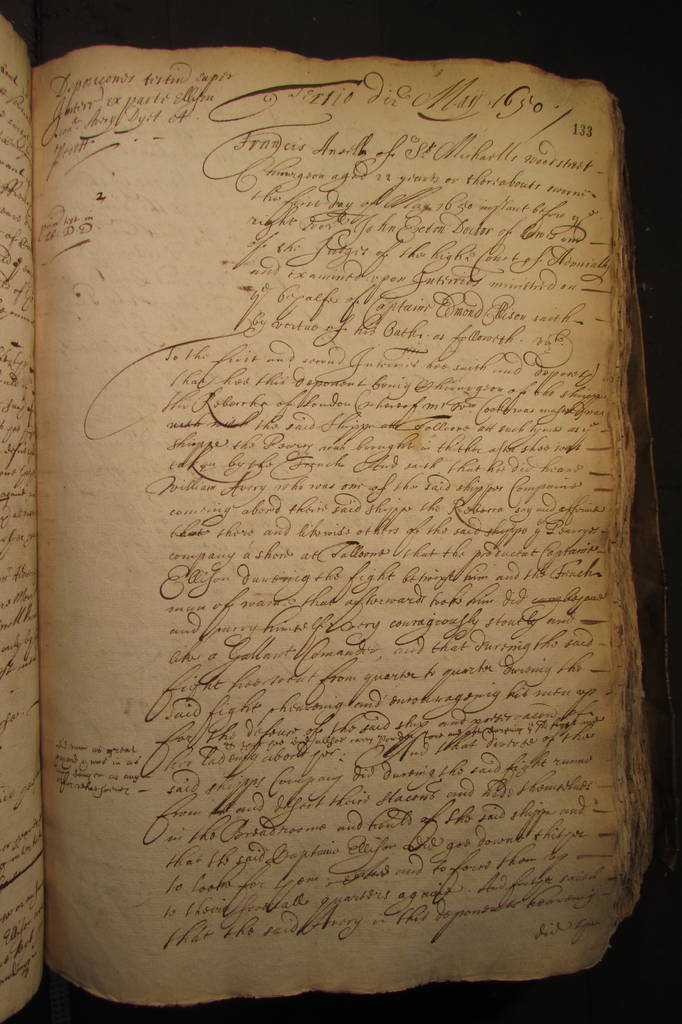 Deposiciones
super
Interr: ex parte Ellison
Dyet et
Tertio die May 1650.
133
Francis Ansell of St Michaells woodstreet
Chirurgeon aged 22 yeares or thereabouts sworne
the first day of May 1650 instant before ye
right John Exton Doctor of lawes one
of the Judges of the high Court of Admiralty
and examined upon Interries ministred on
ye behalfe of Captaine Edmond Ellison saith
by vertue of his Oathe as followeth. vizt.
2
To the first and second Interries hee saith and deposeth
that hee this deponent being Chirurgeon of the shippe
the Rebecka of London whereof mr Cocke was master
with the said Shippe att Tolloone att such time as ye
shippe the Pearey was brought in thither after shee was
taken by the French And saith that hee did heare
William Avery who was one of the said shippes Companie
comeing abord their said shippe the Rebecca say and affirme
there and likewise others of the said shippe ye Peareyes
company a shore at Talloone that the producent Captaine
Ellison dureing the fight betwixt him and the French
man of warre that afterwards tooke him did behave
and carry himselfe very couragiously stoutly and
like a Gallant Comander, and that dureing the said
fight hee went from quarter to quarter dureing the
said fight and encourageing his men up
for the defence of the said ship and preservacion of
her ladeing abord her. And that diverse of the
said shipps Company did dureing the said fight runne
from and desert their stacons and hide themselves
in the Breadroome and of the said shippe and
that the said Captaine Ellison did goe downe thither
to looke for them and to force them up
to their severall quarters againe. And further saith
that the said Avery in this deponents heareing
did